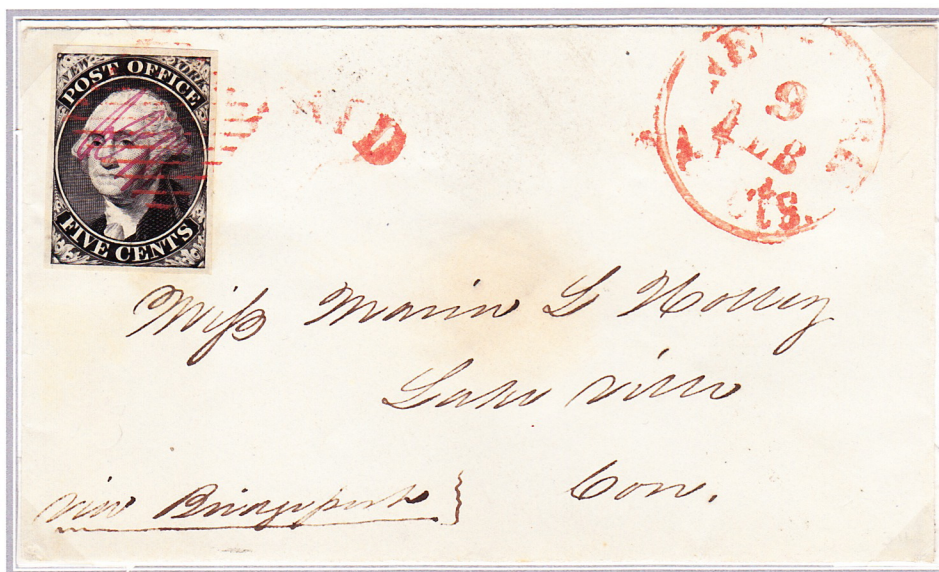 POST OFFICE
FIVE CENTS
9
FEB
cts.
Miss Maria L Holley
Lake Ville
Con.
via Bridgeport